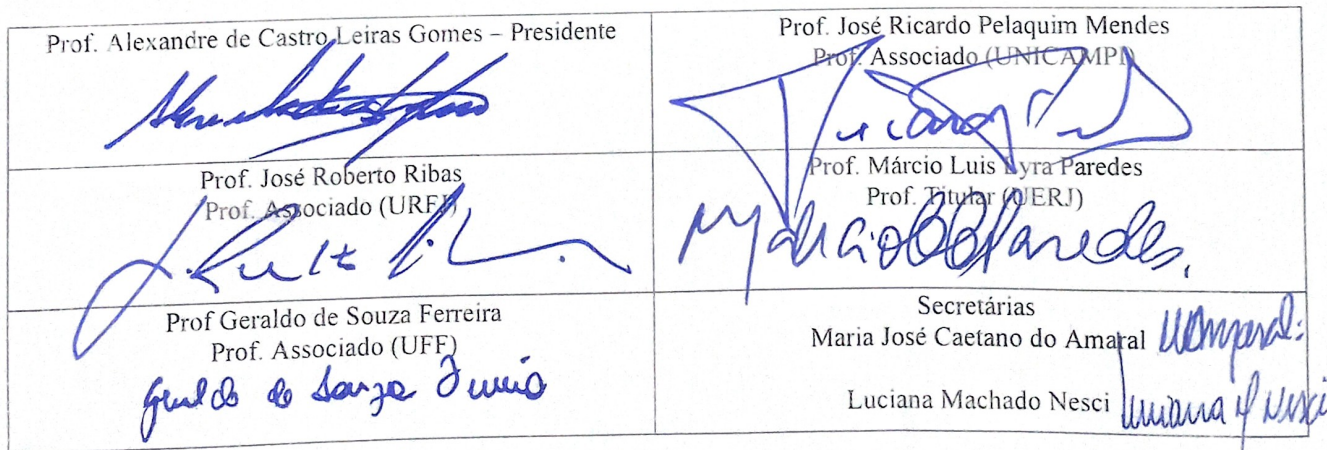 Prof. Alexandre de Castro Leiras Gomes – Presidente
Prof. José Ricardo Pelaquim Mendes
Prof. Associado (UNICAMPI)
Prof. José Roberto Ribas
Prof. Associado (URFJ)
Prof. Márcio Luis Lyra Paredes
Prof. Titular (UERJ)
Marcio LL Paredes.
Prof Geraldo de Souza Ferreira
Prof. Associado (UFF)
Geraldo de Souza Ferreira
Secretárias
Maria José Caetano do Amaral
Luciana Machado Nesci Luciana M Nesci